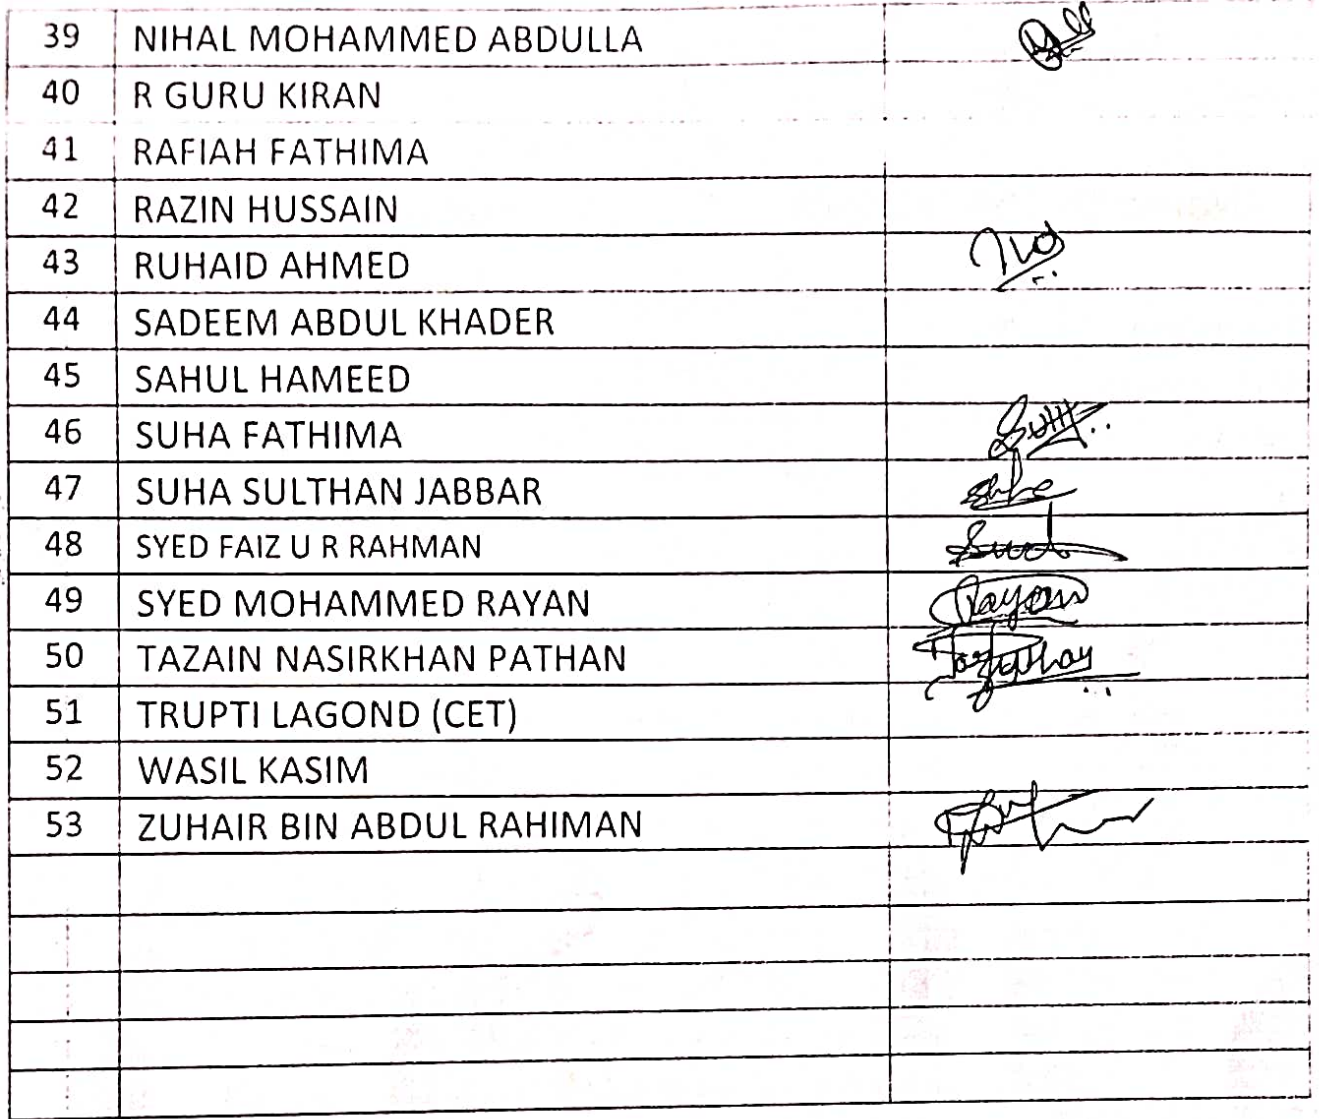 39 NIHAL MOHAMMED ABDULLA
40 R GURU KIRAN
41 RAFIAH FATHIMA
42 RAZIN HUSSAIN
43 RUHAID AHMED
44 SADEEM ABDUL KHADER
45 SAHUL HAMEED
46 SUHA FATHIMA
47 SUHA SULTHAN JABBAR
48 SYED FAIZ U R RAHMAN
49 SYED MOHAMMED RAYAN Rayan
50 TAZAIN NASIRKHAN PATHAN
51 TRUPTI LAGOND (CET)
52 WASIL KASIM
53 ZUHAIR BIN ABDUL RAHIMAN